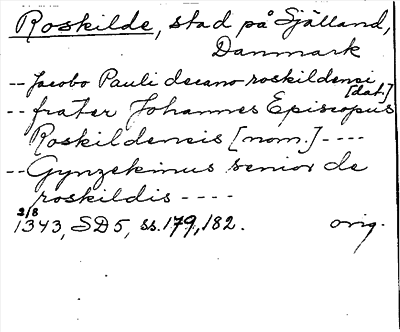 Roskilde, stad på Själland,
Danmark
-- Jacobo Pauli decano roskildensi
[dat.]
-- frater Johannes Episcopus
Roskildensis [nom.] ----
-- Gynzekinus senior de
roskildis ----
2/8
1343, SD5, ss. 179, 182. orig.